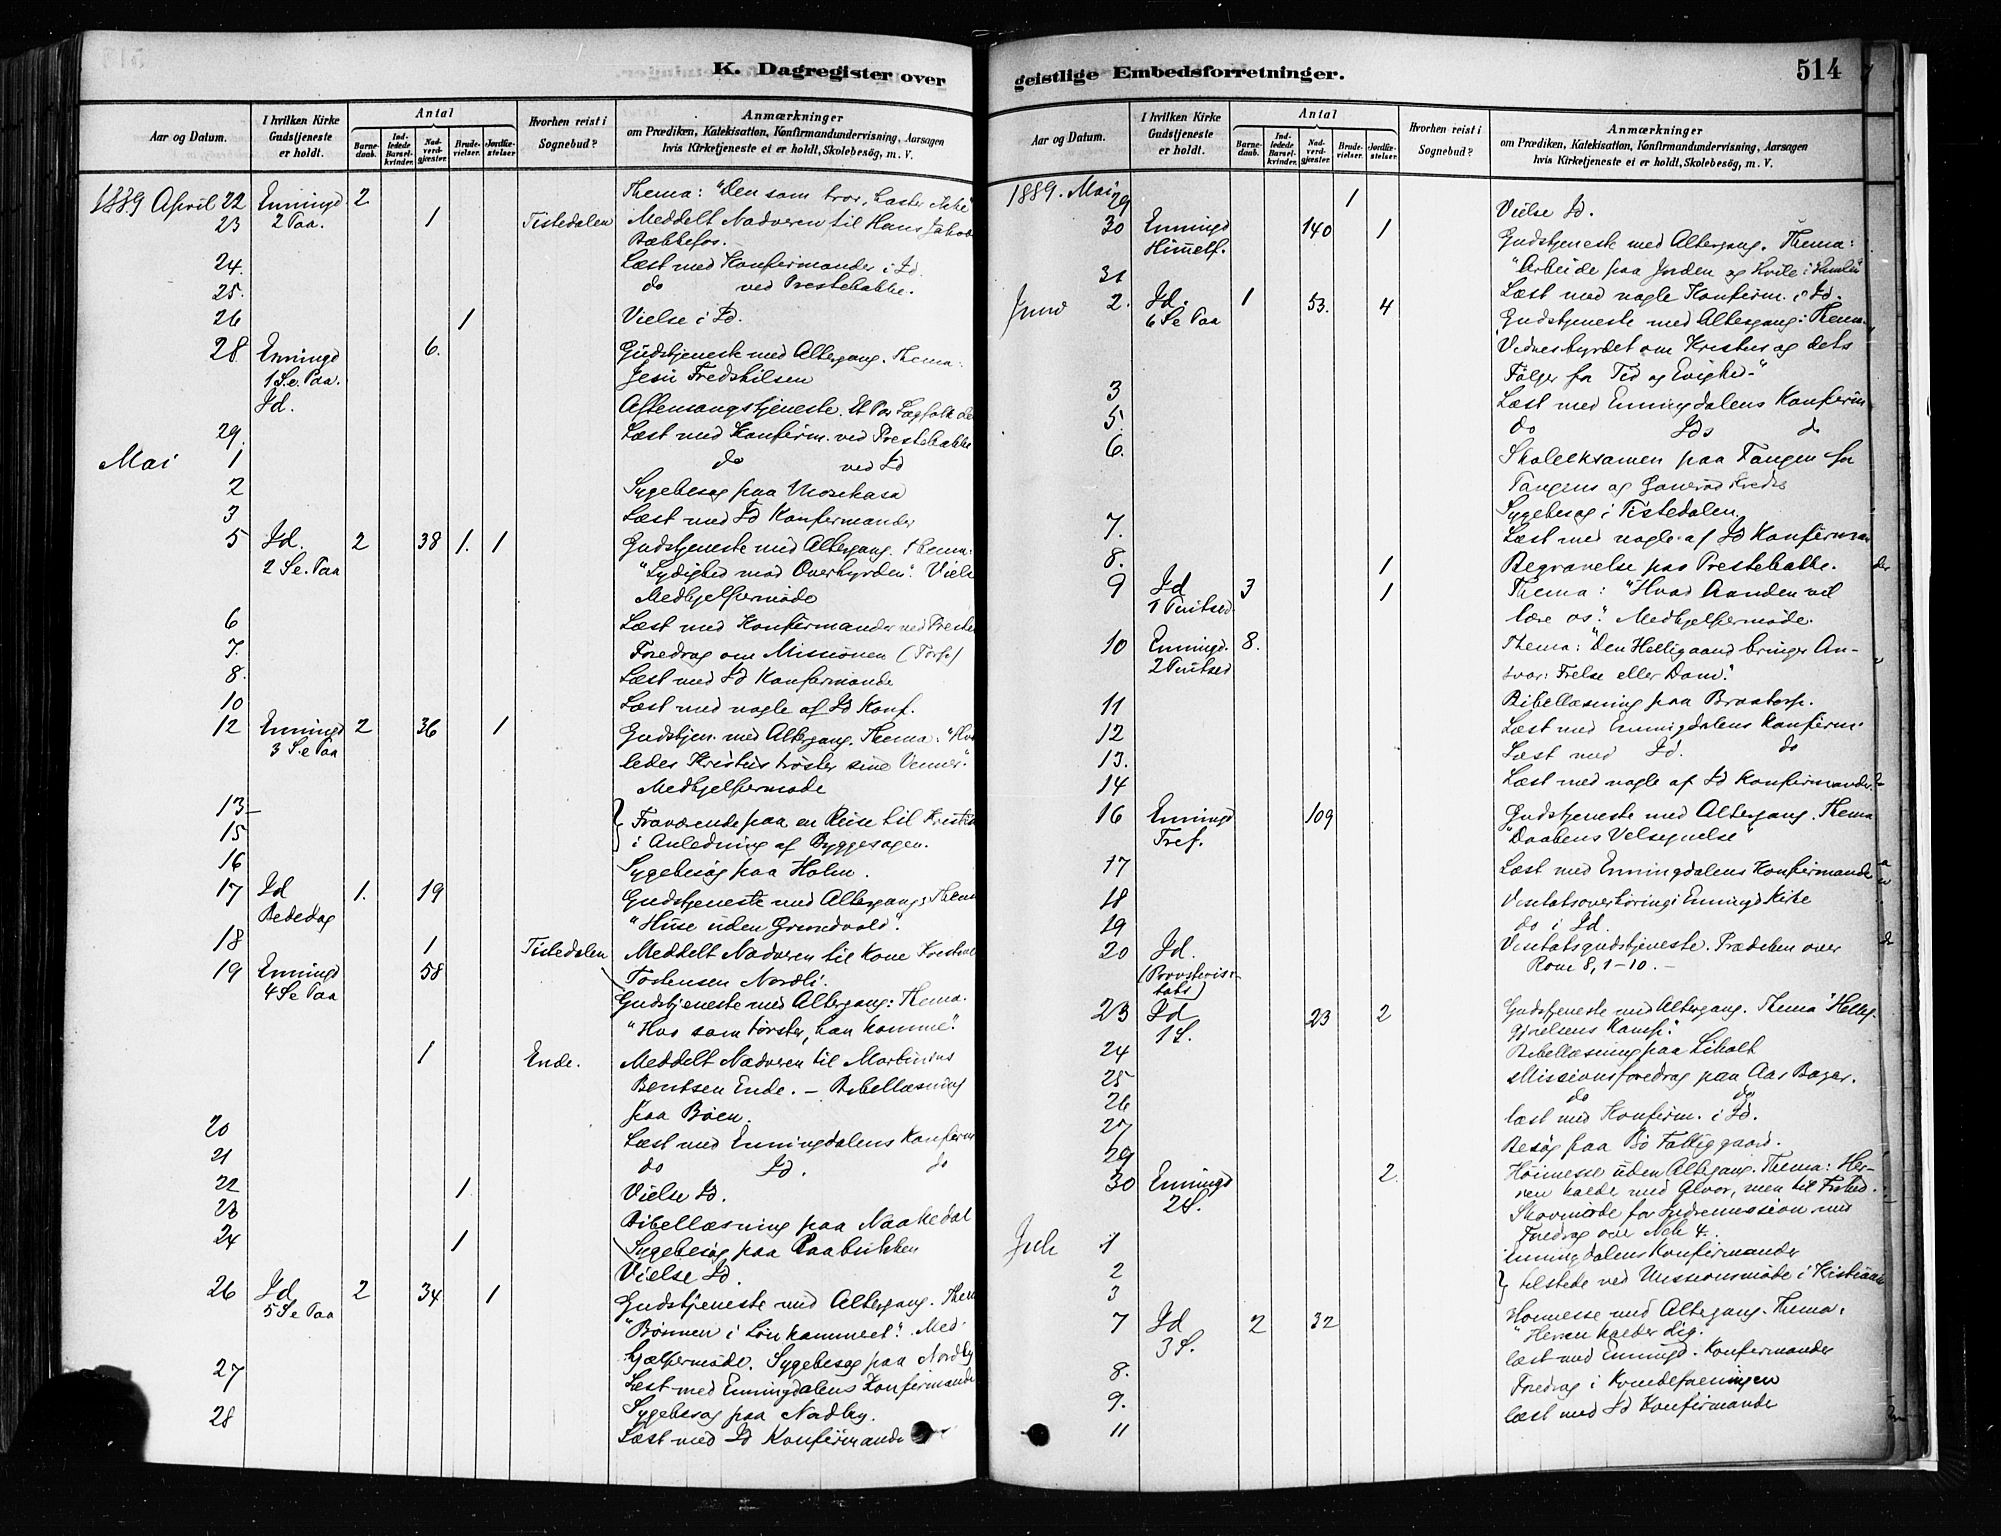 K. Dagregister over
Aar og Datum.
I hvilken Kirke Gudstjeneste er holdt.
Antal
Barnedaab.
Indledede Barselkvinder.
Nadverdgjester.
Brudevielser.
Jordfæstelser.
Hvorhen reist i Sognebud?
Anmærkninger
om Prædiken, Katekisation, Konfirmandundervisning, Aarsagen
hvis Kirketjeneste ei er holdt, Skolebesög, m. V.
1889 April 22 Enningd 2 Thema: "Den som tror, haster ikke"
23 2 Paa. 1 Tistedalen Meddelt Nadveren til Hans Jakob
Bækkefos.
24. Læst med Konfirmander i Id.
25. do ved Prestebakke.
26 1 Vielse i Id.
28. Enningd 6. Gudstjeneste med Altergang. Thema:
1 S.e. Paa. Jesu Fredshilsen
Id. Aftensangstjeneste. Et Par Lægfolk
29. Læst med Konfirm. ved Prestebakke
Mai 1 do ved Id
2 Sygebesøg paa Mosekasa
3 Læst med Id Konfirmander
5 Id. 2 38 1. 1 Gudstjeneste med Altergang. Thema:
2 S.e. Paa "Lydighed mod Overhyrden". Vielse
Medhjelpermøde
6 Læst med Konfirmander ved Preste
7. Foredrag om Missionen (Torp.)
8. Læst med Id Konfirmande
10 Læst med nogle af Id Konf.
12 Enningd 2 36 1 Gudstjen. med Altergang. Thema: "Hvor
3 S.e Paa ledes Kristus trøster sine Venner."
Medhjelpermøde
13- Fraværende paa en Reise til Kristia
15 i Anledning af Byggesagen.
16 Sygebesøg paa Holm.
17 Id 1. 19 Gudstjeneste med Altergang: Thema
Bededag "Huse uden Grundvold".
18 1 Tistedalen Meddelt Nadveren til Kone
19 Enningd 58 Torstensen Nordli.
4 S e Paa Gudstjeneste med Altergang: Thema.
"Hvo som tørster, han komme".
1 Ende. Meddelt Nadveren til Martinius
Berntsen Ende. - Bibellæsning
paa Bøen.
20 Læst med Enningdalens Konfirm
21 do Id. do
22 1 Vielse Id.
23 Bibellæsning paa Naakedal
24 1 Sygebesøg paa
Vielse Id.
26 Id 2 34 1 Gudstjeneste med Altergang. Them
5 S e Paa "Bønnen i Lønkammeret". Med-
hjælpermøde. Sygebesøg paa Nordby
27 Læst med Enningdalens Konfirmande
28 Sygebesøg paa Nordby.
Læst med Id Konfirmande
geistlige Embedsforretninger.
514
Aar og Datum.
I hvilken Kirke Gudstjeneste er holdt.
Antal
Barnedaab.
Indledede Barselkvinder.
Nadverdgjester.
Brudevielser.
Jordfæstelser.
Hvorhen reist i Sognebud?
Anmærkninger
om Prædiken, Katekisation, Konfirmandundervisning, Aarsagen
hvis Kirketjeneste ei er holdt, Skolebesög, m. V.
1889. Mai 29 1 Vielse Id.
30 Enningd 140 1 Gudstjeneste med Altergang. Thema:
Himelf. "Arbeide paa Jorden og Hvile i Himlen"
31 Læst med nogle Konfirm. i Id.
Juni 2. Id. 1 53. 4 Gudstjeneste med Altergang: Thema.
6 S e Paa Vidnesbyrdet om Kristus og dets
Følger for Tid og Evighed."
3 Læst med Enningdalens Konfirm
5. do Ids do
6. Skoleeksamen paa Tangen for
Tangens og Kreds
Sygebesøg i Tistedalen.
7. Læst med nogle af Id Konfirman
8. 1 Begravelse paa Prestebakke. der
9 Id 3 1 Thema: "Hvad Aanden vil
1 Pintsed lære os". Medhjelpermøde.
10 Enningd. 8. Thema: "Den Helligaand bringer An-
2 Pintsed svar: Frelse eller Dom".
11 Bibellæsning paa Braatorp.
12 Læst med Enningdalens Konfirm.
13. Læst med Id. do
14 Læst med nogle af Id Konfirmander
16 Enningd 109 Gudstjeneste med Altergang. Thema
Tref. "Daabens Velsignelse"
17 Læst med Enningdalens Konfirmande
18 Visitatsoverhøring i Enningd Kirke
19 do i Id.
20 Id. Visitatsgudstjeneste. Prædiken over
(Provstevisi- Rom 8, 1-10. -
tats)
23 Id 23 2 Gudstjeneste med Altergang. Thema "Hellig-
1 S. gjørelsens Kamp".
24 Bibellæsning paa Liholt
25 Missionsforedrag paa Aas
26 do do
27 læst med Konfirm. i Id.
29 Besøg paa Bø Fattiggaard.
30 Enningd 2. Høimesse uden Altergang. Thema: Her-
2 S. ren kalder med Alvor, men til Frihed.
Skovmøde for Indremission med
Foredrag over Neh 4.
Juli 1 Enningdalens Konfirmander
2 tilstede ved Missionsmøde i Kristiania
3
7 Id 2 32 Høimesse med Altergang. Thema:
3 S. "Herren kalder dig.
8. læst med Enningd. Konfirmander
9. Foredrag i Kvindeforeningen
11 læst med Id Konfirmande